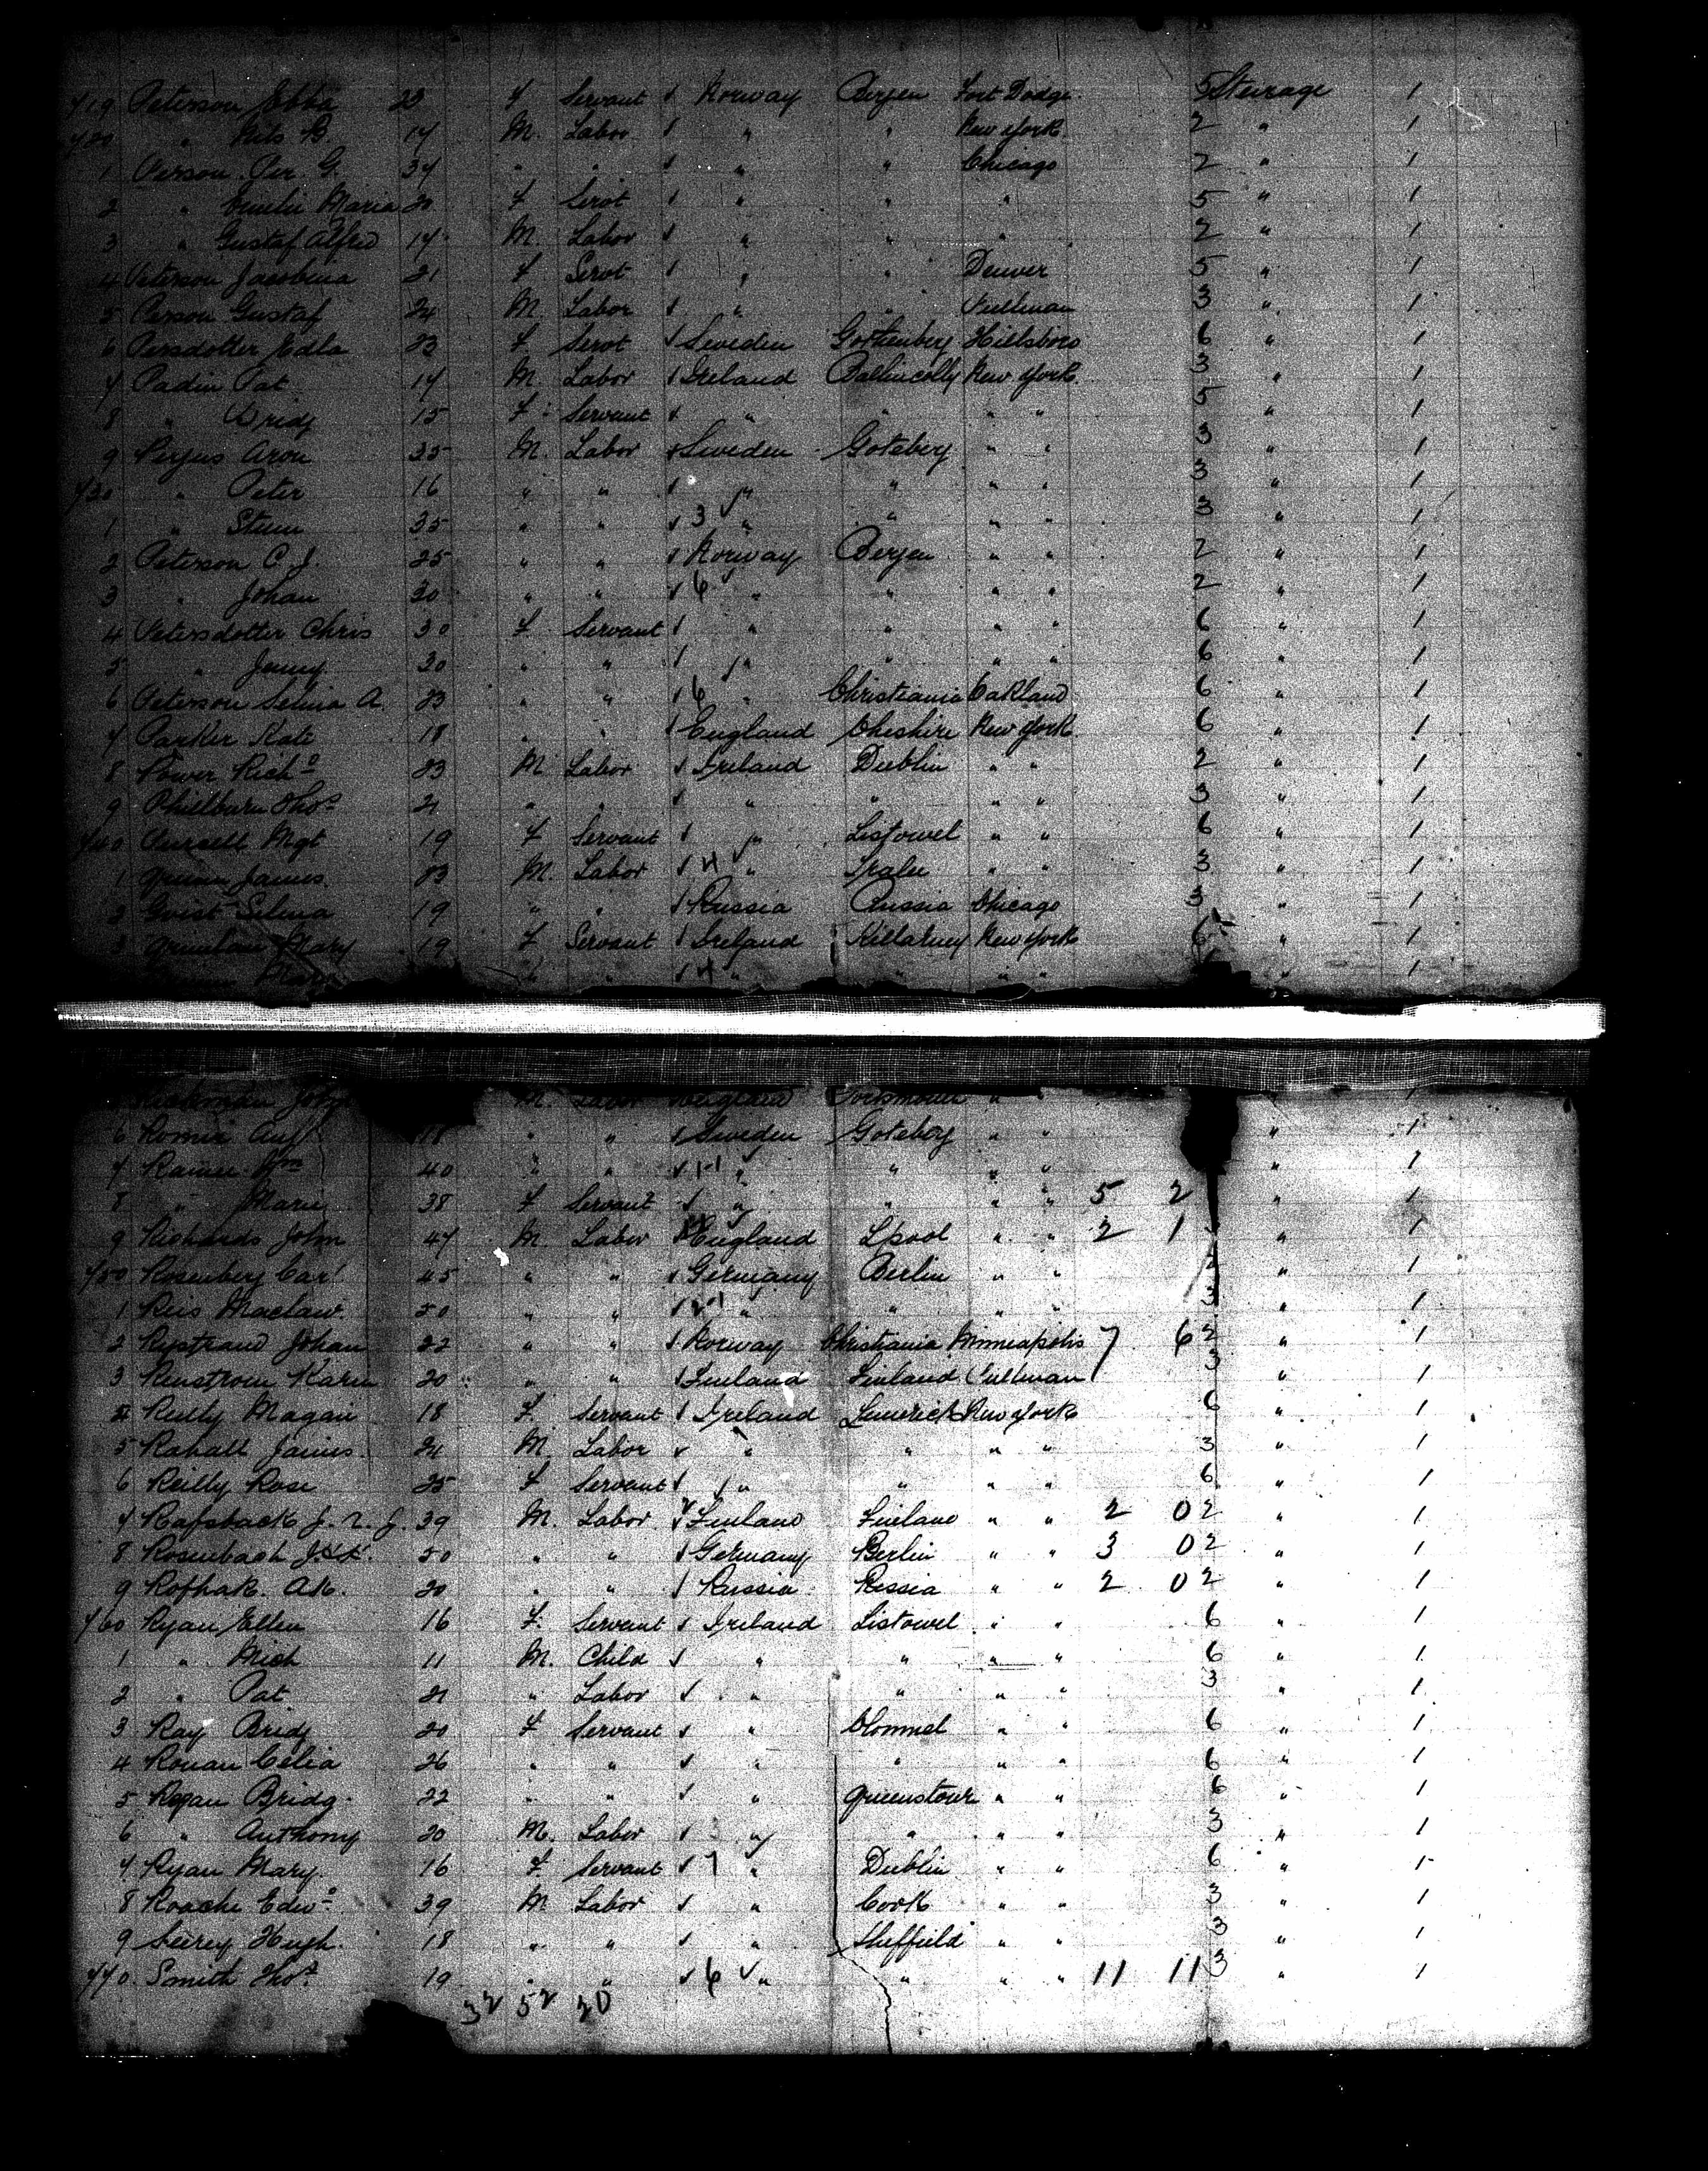 719 Peterson Ebba 23 F Servant √ Norway Bergen Fort Dodge 5 Steerage 1
720 " Nils B. 17 M. Labor √ " " New York 2 " 1
1 Person Per G. 34 " " √ " " Chicago 2 " 1
2 " Emelie Maria 20 F Servt √ " " " 5 " 1
3 " Gustaf Alfred 17 M. Labor √ " " " 2 " 1
4 Peterson Jacobina 21 F Servt √ " " Denver 5 " 1
5 Person Gustaf 24 M. Labor √ " " Pullman 3 " 1
6 Persdotter Edla 23 F Servt √ Sweden Gothenberg Hillsboro 6 " 1
7 Padin Pat 17 M. Labor √ Ireland Ballincolly New York 3 " 1
8 " Bridg 15 F Servant √ " " " " 5 " 1
9 Aron 35 M. Labor √ Sweden Goteberg " " 3 " 1
730 " Peter 16 " " √ " " " " 3 " 1
1 " 35 " " √ 3 √ " " " " 3 " 1
2 Peterson C. J. 25 " " √ Norway Bergen " " 2 " 1
3 " Johan 30 " " √ 6 √ " " " " 2 " 1
4 Petersdotter Chris 30 F Servant √ " " " " 6 " 1
5 " Jenny 20 " " √ " " " " 6 " 1
6 Peterson Selina A. 23 " " √ 6 " Christiania Oakland 6 " 1
7 Parker Kate 18 " " √ England Cheshire New York 6 " 1
8 Power Richd 23 M Labor √ Ireland Dublin " " 2 " 1
9 Philburn Thos 21 " " √ " " " " 3 " 1
740 Pursell Mgt 19 F Servant √ " Listowel " " 6 " 1
1 Quinn James 23 M. Labor √ 4 √ " Tralee " " 3 " 1
2 Qvist Selma 19 " " √ Russia Russia Chicago 3 " 1
3 Quinlan Mary 19 F Servant √ Ireland Killarney New York 6 " 1
Mary " " √ 4 " " " " " 1
M. Labor England Portsmouth "
6 Romir Aug 17 " " √ Sweden Goteberg " " " 1
7 Wm 40 " " √ 1-1 " " " " " 1
8 " Marie 38 F Servant √ " " " " 5 2 " 1
9 Richards John 47 M. Labor England Lpool " " 2 1 " 1
750 Rosenberg Carl 45 " " √ Germany Berlin " " 2 " 1
1 Reis Maclaw 50 " " √ " " " " 3 " 1
2 Rystrand Johan 22 " " √ Norway Christiania Minneapolis 7 6 2 " 1
3 Renstrom Karu 20 " " √ Finland Finland Pullman 3 " 1
4 Reilly Magaie 18 F. Servant √ Ireland Limerick New York 6 " 1
5 Rahall James 24 M. Labor √ " " " " 3 " 1
6 Reilly Rose 25 F Servant √ " " " " 6 " 1
7 Rafsback J. J. 39 M. Labor √ Finland Finland " " 2 0 2 " 1
8 Rosenbach 50 " " √ Germany Berlin " " 3 0 2 " 1
9 Rofhak. Ak. 20 " " √ Russia Russia " " 2 0 2 " 1
760 Ryan Ellen 16 F. Servant √ Ireland Listowel " " 6 " 1
1 " Mich 11 M. Child √ " " " " 6 " 1
2 " Pat 21 " Labor √ " " " " 3 " 1
3 Ray Bridg 20 F Servant √ " Clonmel " " 6 " 1
4 Ronan Celia 26 " " √ " " " " 6 " 1
5 Regan Bridg. 22 " " √ " Queenstown " " 6 " 1
6 " Anthony 20 M. Labor √ " " " " 3 " 1
7 Ryan Mary. 16 F. Servant √ 7 " Dublin " " 6 " 1
8 Roache Edwd 39 M Labor √ " Cork " " 3 " 1
9 Seerey Hugh. 18 " " √ " Sheffield " " 3 " 1
770 Smith Thos 19 " " √ 6 √ " " " " 11 11 3 " 1
32 52 20